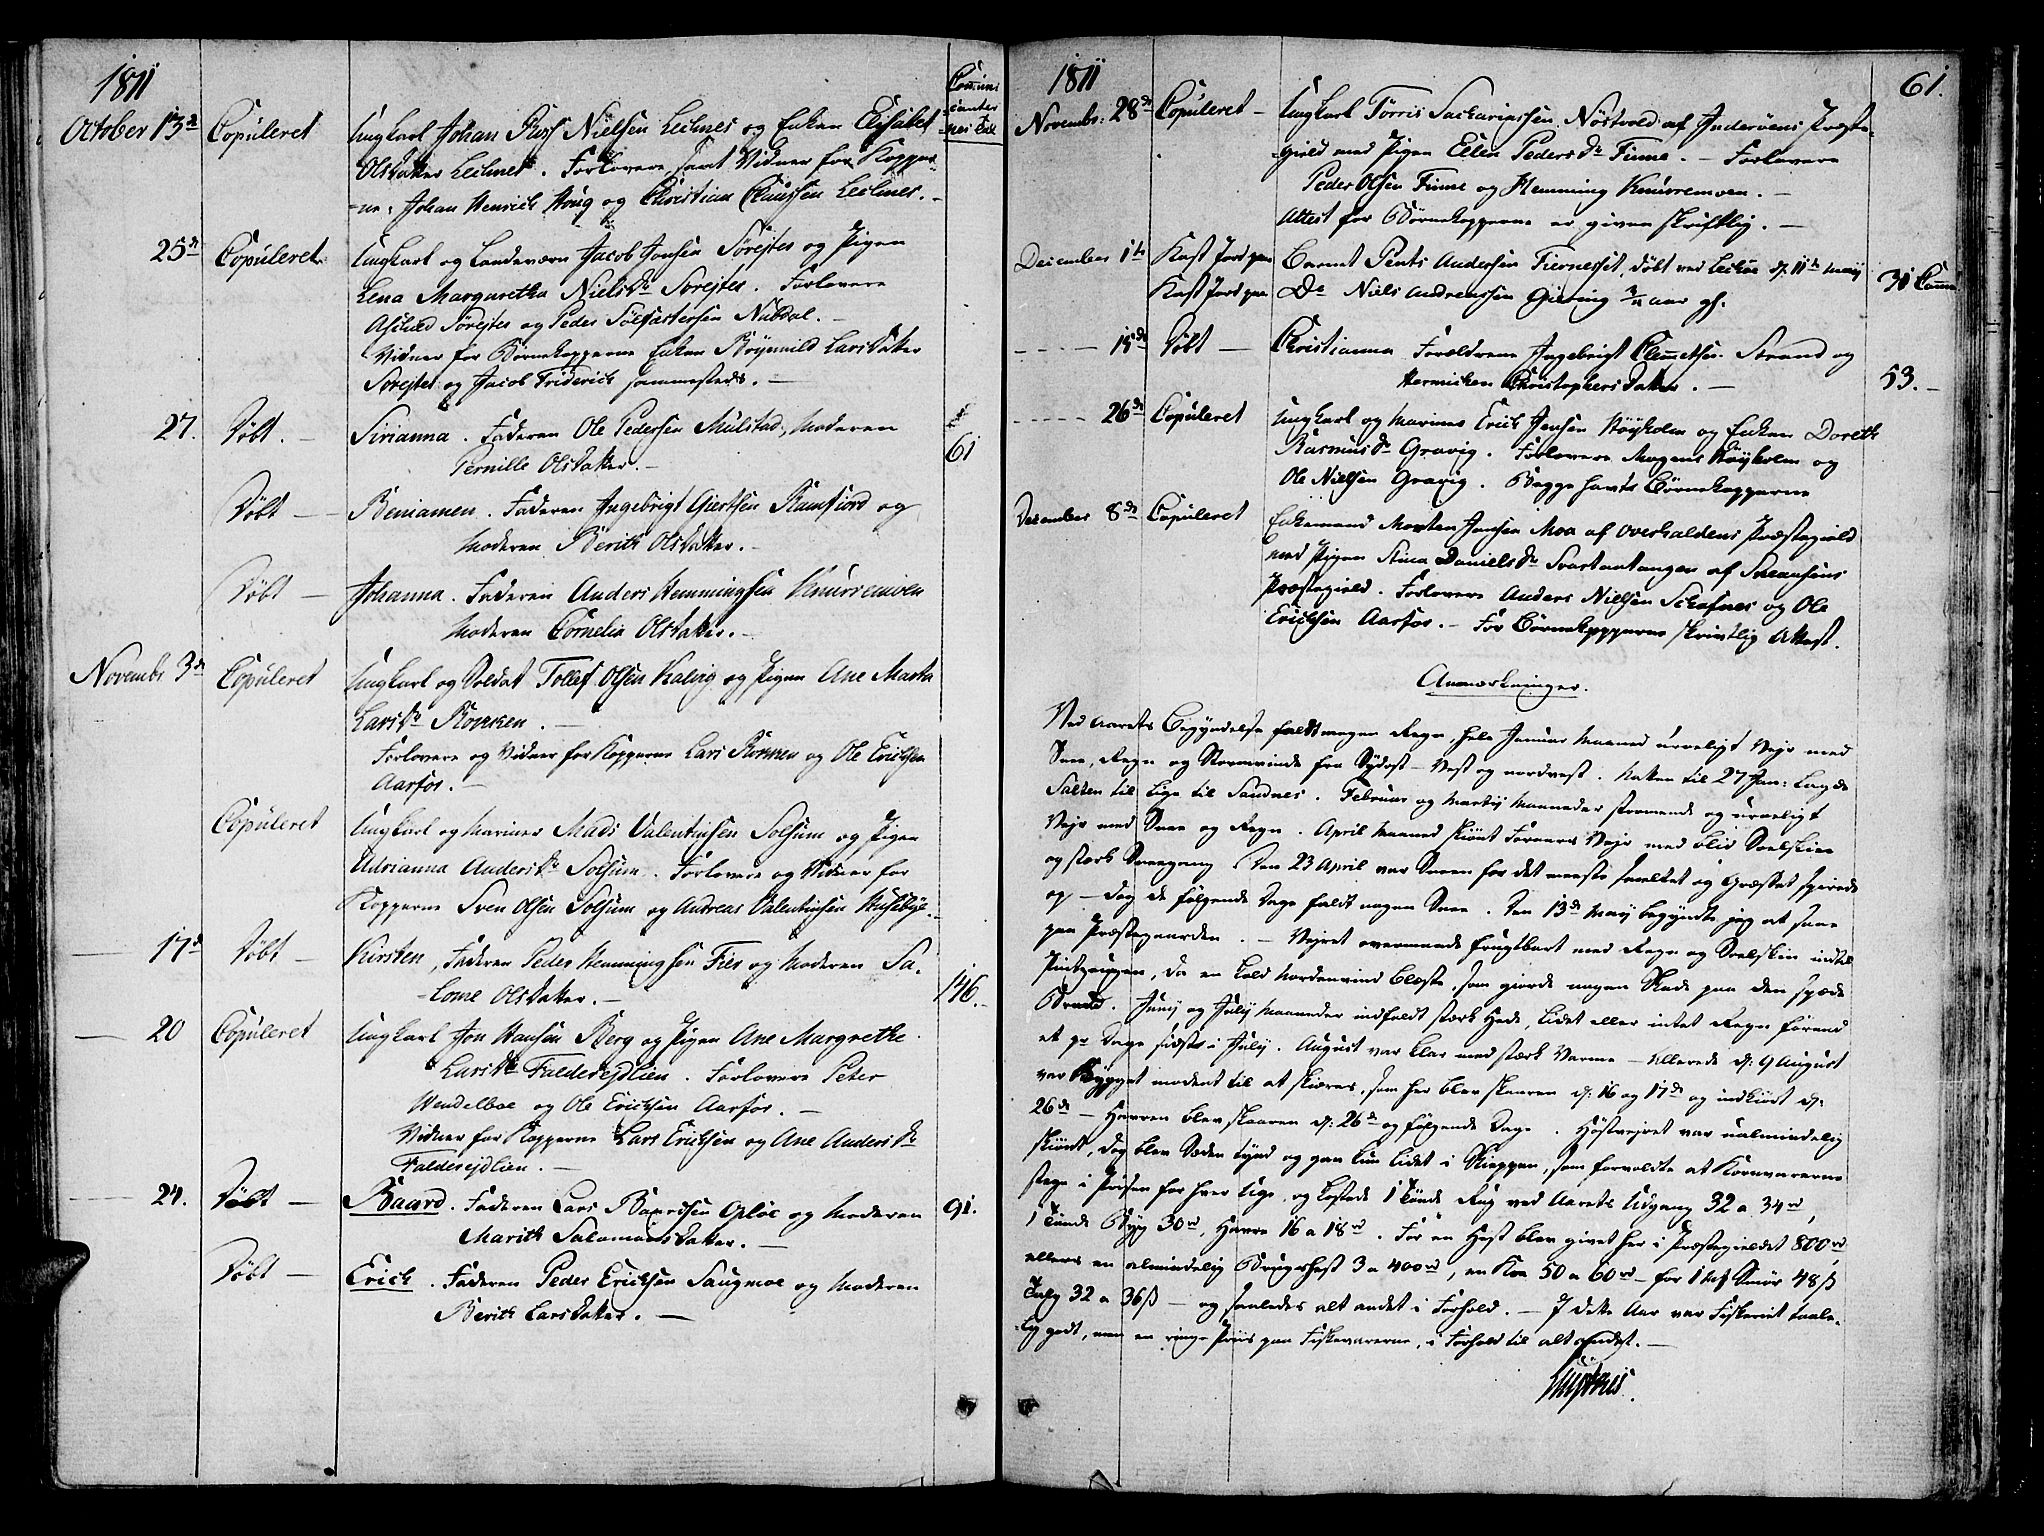 1811
October 13de Copuleret Ungkarl Johan Nielsen Lechnes og Enken Elisabet
Olsdatter Lechnes. Forlovere samt Vidner for Kopper-
ne: Johan Henrich Houg og Christian Claussen Lechnes.
Communi
canter
nes Tal
25de Copuleret Ungkarl og Landeværn Jacob Jonsen Sørejtes og Pigen
Lena Margaretha Nielsdr Sørejtes. Forlovere
Sørejtes og Peder Nubdal.
Vidner for Børnekopperne Enken Larsdatter
Sørejtes og Jacob Friderich sammesteds.
27. Døbt. Sirianna. Faderen Ole Pedersen Mulstad, Moderen
Pernille Olsdatter. 61
Døbt Beniamen. Faderen Ingebrigt Giertsen Ramfiord og
Moderen Berith Olsdatter.
Døbt Johanna. Faderen Anders Hemmingsen Knurremoen
Moderen Cornelia Olsdatter.
Novembr 3de Copuleret Ungkarl og Soldat Tollef Olsen Kalvig og Pigen Ane Marta
Larsdr Rokken.
Forlovere og Vidner for Kopperne Lars Rokken og Ole Erichsen
Aarfor.
Copuleret Ungkarl og Mariner Mads Valentinsen Solsum og Pigen
Adrianna Andersdr Solsum. Forlovere og Vidner for
Kopperne Sven Olsen Solsum og Andreas Valentinsen Husebye.
17de Døbt Kirsten, Faderen Peder Hemmingsen Fier og Moderen Sa-
lome Olsdatter. 146.
20 Copuleret Ungkarl Jon Hansen Berg og Pigen Ane Margrethe
Larsdr Falderejdlien. Forlovere Peter
Wendelboe og Ole Erichsen Aarfor.
Vidner for Kopperne Lars Erichsen og Ane Andersdr
Falderejdlien.
24. Døbt Baard. Faderen Lars Baardsen Opløe og Moderen 91.
Marith Salamonsdatter.
Døbt Erich. Faderen Peder Erichsen Saugmoe og Moderen
Berith Larsdatter.
1811 61.
Novembr: 28de Copuleret Ungkarl Tørris Sachariassen Nøstvold af Inderøens Præste-
gield med Pigen Ellen Pedersdr Finne. Forlovere
Peder Olsen Finne og Hemming Knurremoen.
Attest for Børnekopperne er given skriftlig.
December 1te Kast Jord paa Barnet Pents Andersen Fiernesset, døbt ved Lechøe d: 11te Maij
Kast Jord paa Do Niels Andreassen Giering aar gl. 30 Comm
15de Døbt Christianna Forældrene Ingebrigt Clemetsen Strand og
Hermichen Christophersdatter. 53.
26de Copuleret Ungkarl og Mariner Erich Jensen Høyholm og Enken Doreth
Rasmusdr Gravig. Forlovere Mogens Høyholm og
Ole Nielsen Gravig. Begge havte Børnekopperne
December 8de Copuleret Enkemand Morten Jansen Moa af Overhaldens Præstegield
med Pigen Stina Danielsdr Svartantangen af Snaasens
Præstegield. Forlovere Anders Nielsen Schafnes og Ole
Erichsen Aarfor. For Børnekopperne skrivtlig Attest.
Anmærkninger.
Ved Aarets Begyndelse faldt megen Regn, hele Januar Maaned uroeligt Vejr med
Snee, Regn og Stormvinde fra Sydost - Vest og nordvest. Natten til 27 Jan: Lagde
Salten til lige til Sandnes. Februar og Martij Maaneder stormende og uroeligt
Vejr med Snee og Regn. April Maaned skiønt Foraars Vejr med blid Soelskin
og stærk Sneegang. Den 23 April var Sneen for det meste smeltet og Græsset spirede
op - dog de følgende Dage faldt nogen Snee. Den 13de Maij begyndte jeg at saae
paa Præstegaarden. Vejret overmaade frugtbart med Regn og Soelskin indtil
Pintzuggen, da en kold Nordenvind blæste, som giorde nogen Skade paa den spæde
. Junij og Julij Maaneder indfaldt stærk Hede, lidet eller intet Regn førend
et pr Dage sidst i Julij. August var klar med stærk Varme - Allerede d: 9 August
var Bygget modent til at skiæres, som her blev skaaren d: 16 og 17de og indkiørt d:
26de - Havren blev skaaren d: 26de og følgende Dage. Høstvejret var ualmindelig
skiønt, dog blev Sæden tynd og gav kun lidet i Skieppen, som forvoldte at Kornvarerne
stege i Prisen for hver Uge, og kostede 1 Tønde Rug ved Aarets Udgang 32 a 34rd,
1 Tønde Byg 30rd, Havre 16 a 18rd. For en Hest blev givet her i Præstegieldet 800rd,
ellers en almindelig Brugshest 3 a 400rd, en Koe 50 a 60rd - for 1 Smør 48ß
Talg 32 a 36ß - og saaledes alt andet i Forhold. I dette Aar var Fiskeriet taale-
lig godt, men en ringe Priis paa Fiskevarerne, i Forhold til alt Andet.